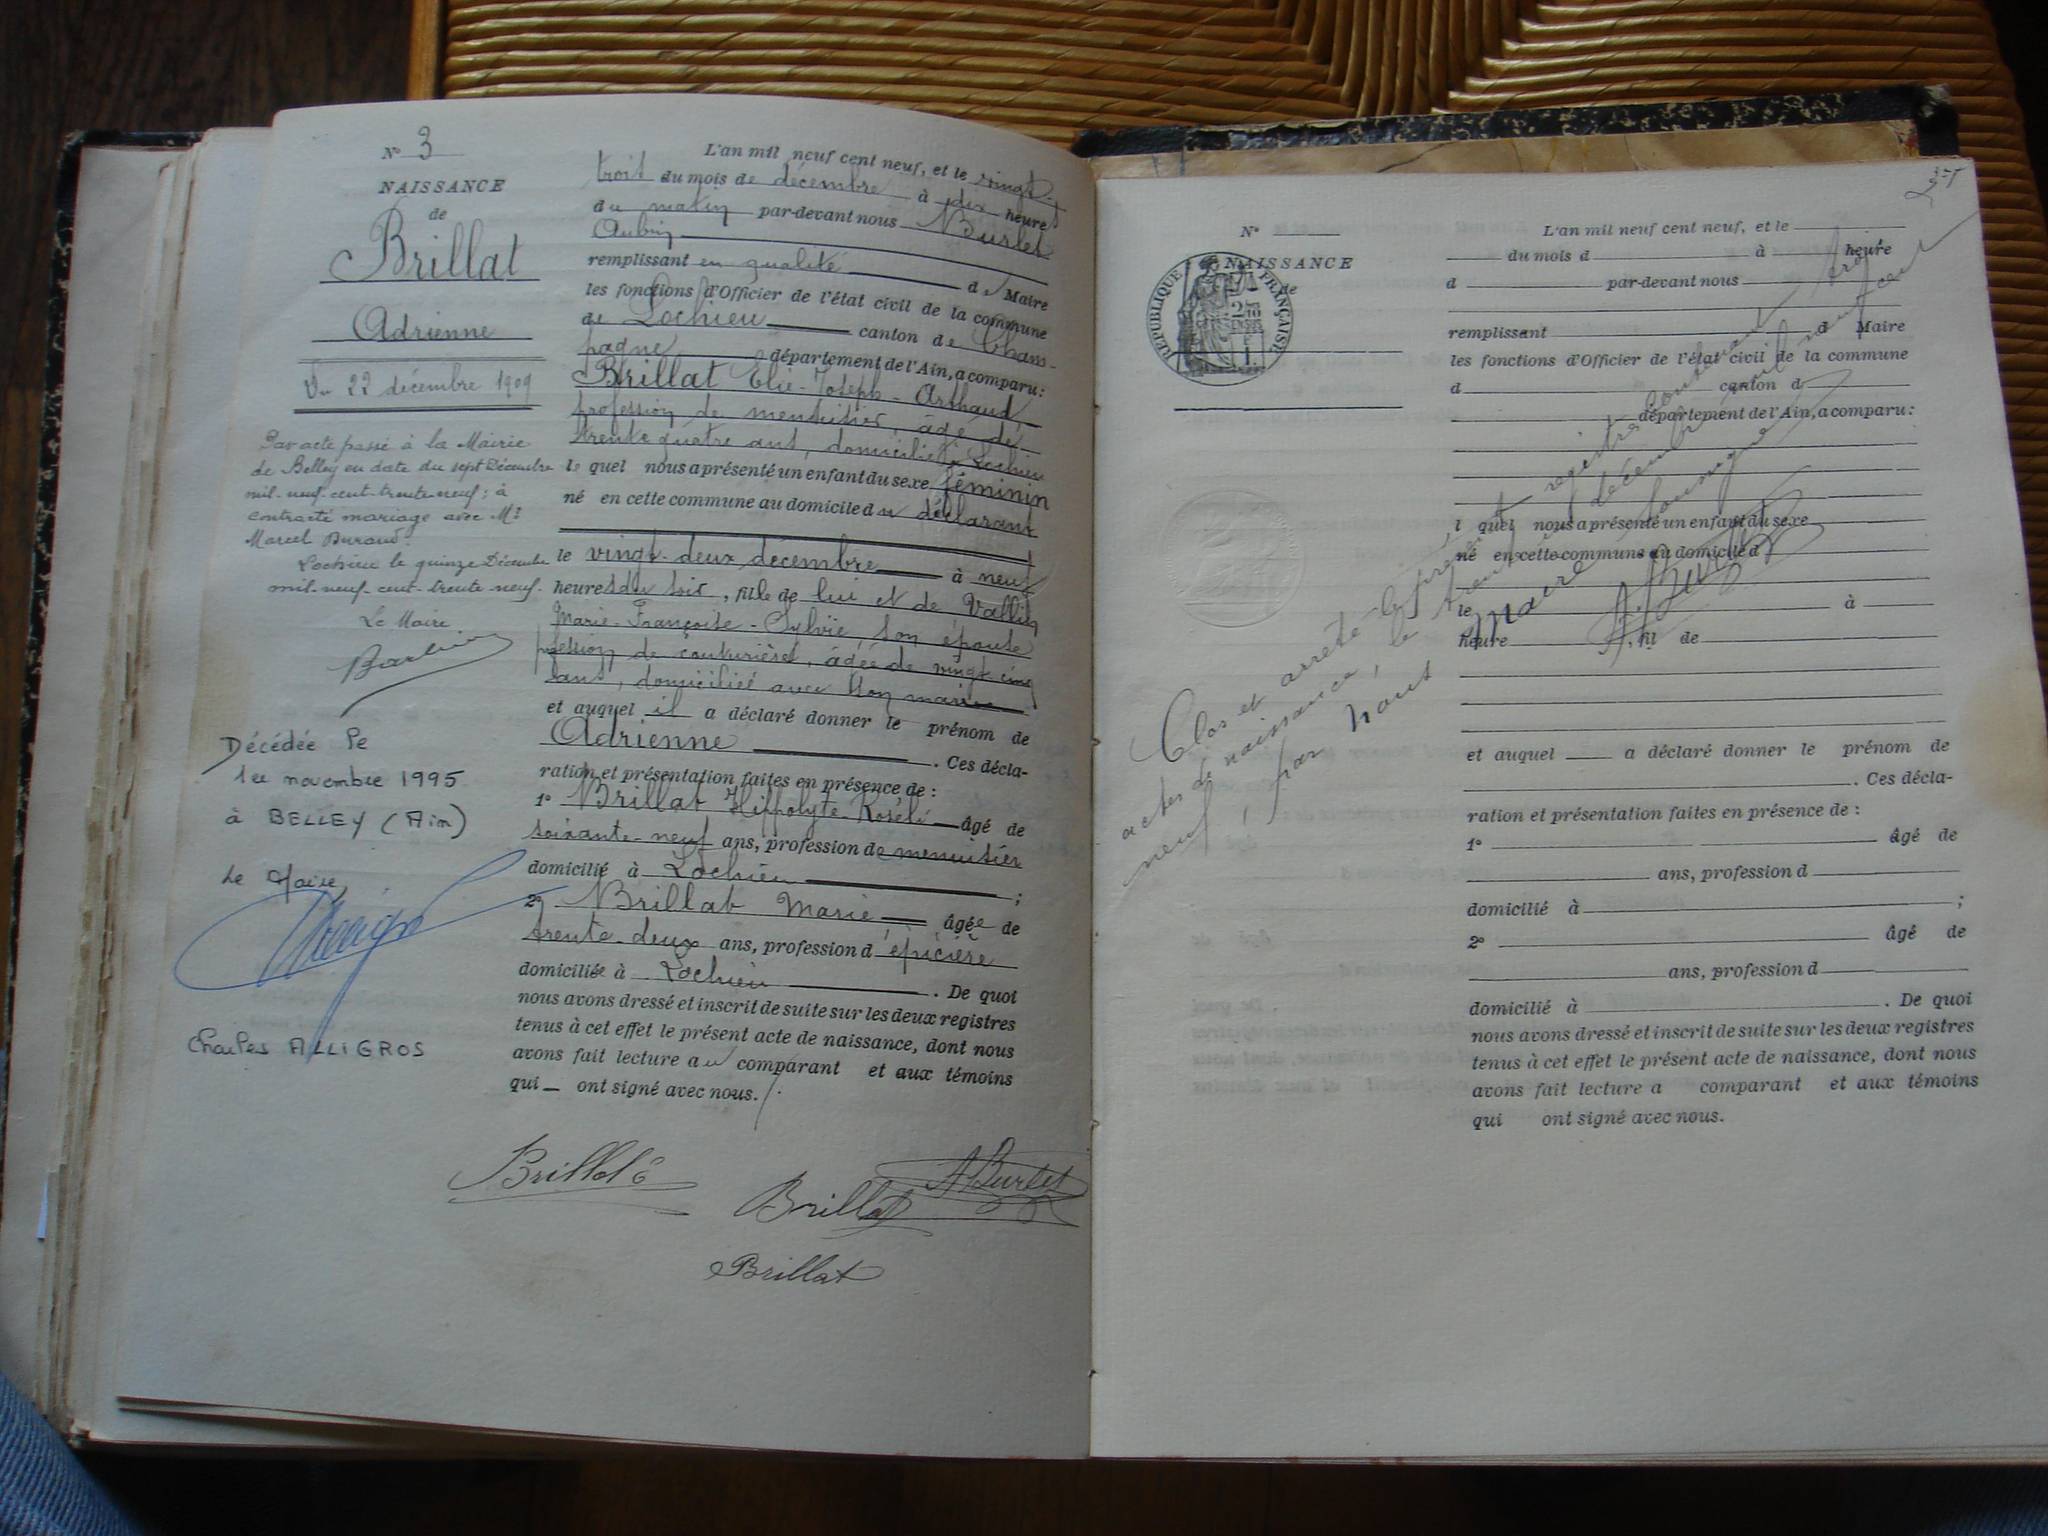 N° 3
NAISSANCE
de
Brillat
Adrienne
Du 22 décembre 1909
Par acte passé à la Mairie
de Belley en date du sept Décembre
mil-neuf-cent-trente-neuf; à
contracté mariage avec Mr
Marcel Buraud.
Lochieu le quinze Décembre
mil-neuf-cent-trente-neuf.
Le Maire
Décédée le
1er novembre 1995
à BELLEY (Ain)
Le Maire,
Charles ALLIGROS
L'an mil neuf cent neuf, et le vingt
trois du mois de décembre à dix heures
du matin par-devant nous Burlet
Aubin
remplissant en qualité de Maire
les fonctions d'Officier de l'état civil de la commune
de Lochieu canton de Cham-
pagne département de l'Ain, a comparu :
Brillat Elie-Joseph-Arthaud
profession de menuisier, âgé de
trente quatre ans, domicilié à Lochieu
lequel nous a présenté un enfant du sexe féminin
né en cette commune au domicile du déclarant
le vingt-deux décembre à neuf
heures du soir, fille de lui et de Vallin
Marie-Françoise-Sylvie, son épouse
profession de couturière, âgée de vingt cinq
ans, domiciliée avec son mari
et auquel il a déclaré donner le prénom de
Adrienne . Ces décla-
ration et présentation faites en présence de :
1° Brillat Hippolyte-Roséli âgé de
soixante-neuf ans, profession de menuisier
domicilié à Lochieu ;
2° Brillat Marie âgée de
trente-deux ans, profession d'épicière
domiciliée à Lochieu . De quoi
nous avons dressé et inscrit de suite sur les deux registres
tenus à cet effet le présent acte de naissance, dont nous
avons fait lecture au comparant et aux témoins
qui ont signé avec nous.
Brillat
Brillat
A Burlet
Brillat
N°
NAISSANCE
de
RÉPUBLIQUE FRANÇAISE
L'an mil neuf cent neuf, et le
du mois d à heure
d par-devant nous
remplissant d Maire
les fonctions d'Officier de l'état civil de la commune
d canton d
département de l'Ain, a comparu :
l quel nous a présenté un enfant du sexe
né en cette commune au domicile d
le à
heure , fil de
et auquel a déclaré donner le prénom de
. Ces décla-
ration et présentation faites en présence de :
1° âgé de
ans, profession d
domicilié à ;
2° âgé de
ans, profession d
domicilié à . De quoi
nous avons dressé et inscrit de suite sur les deux registres
tenus à cet effet le présent acte de naissance, dont nous
avons fait lecture a comparant et aux témoins
qui ont signé avec nous.
Clos et arrêté le présent registre contenant trois
actes de naissance, le trente un décembre mil neuf cent
neuf, par nous Maire soussigné
A Burlet